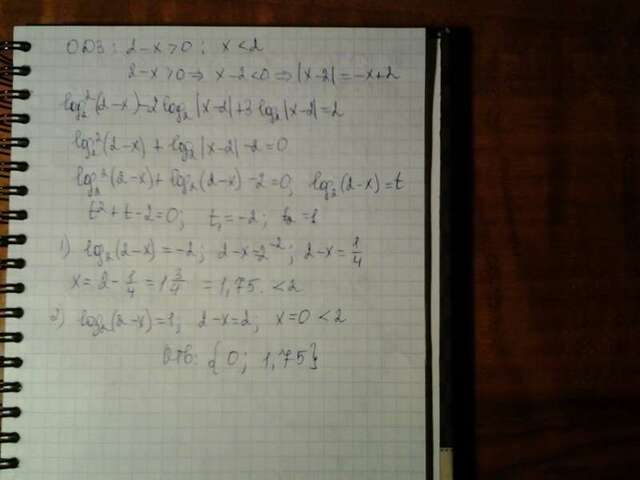 ОДЗ: 2-x>0; x<2
2-x>0 ⇒ x-2<0 ⇒ |x-2|=-x+2
log₂²(2-x)-2log₂|x-2|+3log₂|x-2|=2
log₂²(2-x)+log₂|x-2|-2=0
log₂²(2-x)+log₂(2-x)-2=0; log₂(2-x)=t
t²+t-2=0; t₁=-2; t₂=1
1) log₂(2-x)=-2; 2-x=2⁻²; 2-x=1/4
x=2-1/4=1 3/4=1,75. <2
2) log₂(2-x)=1; 2-x=2; x=0<2
Отв: {0; 1,75}